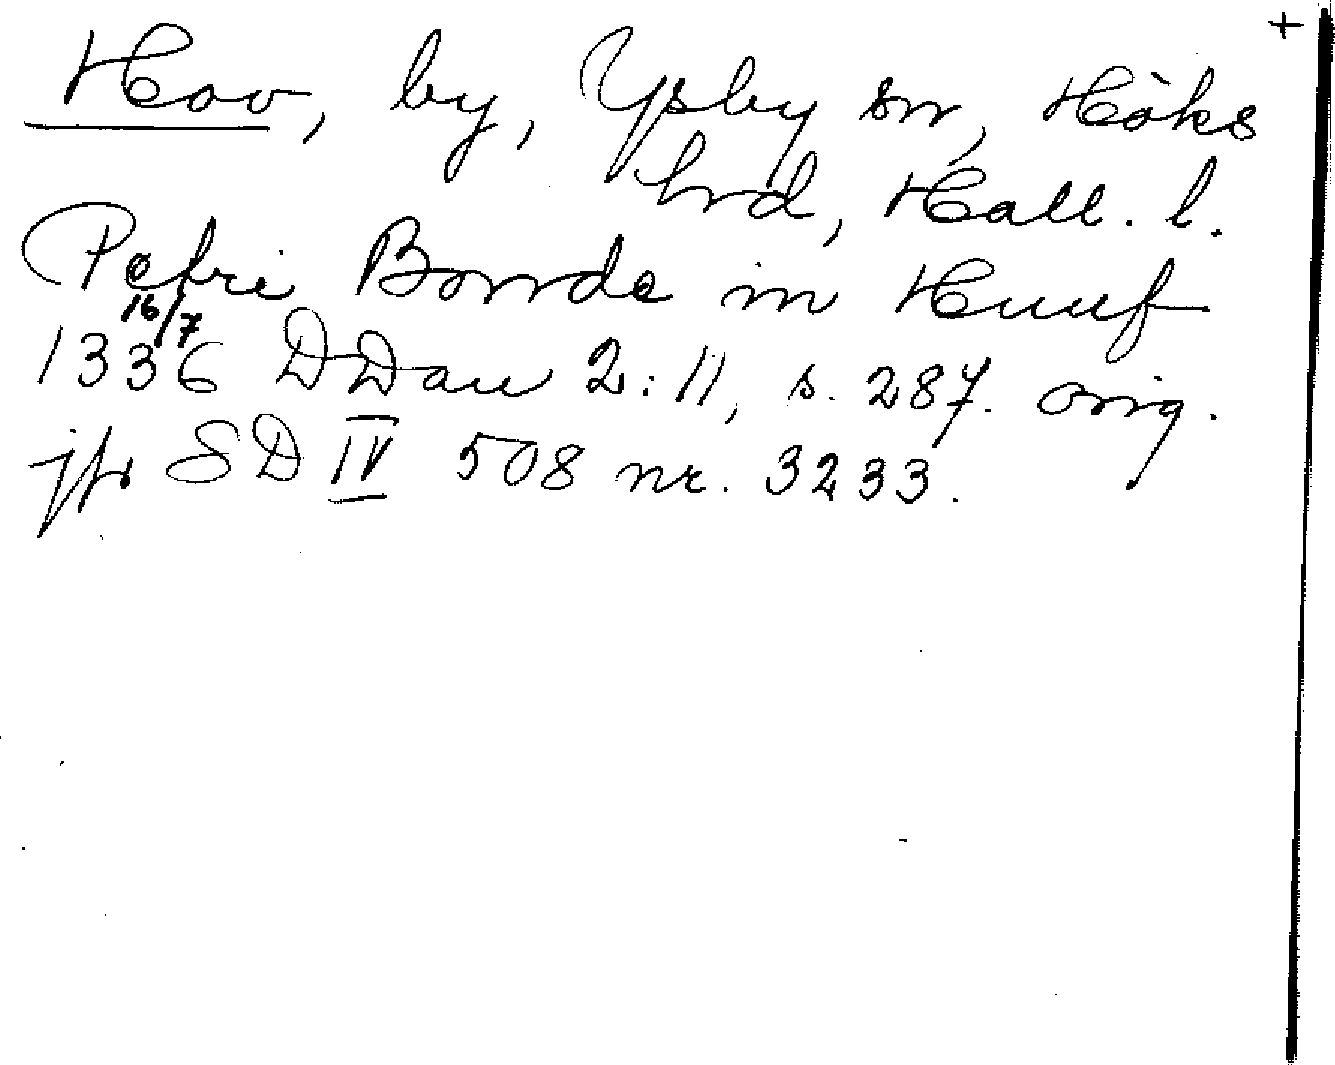 +
Hov, by, Ysby sn, Höks
hrd, Hall. l.
Petri Bonde in Huuf
16/7
1336 DDan 2:11, s. 287. orig.
jfr SD IV 508 nr. 3233.